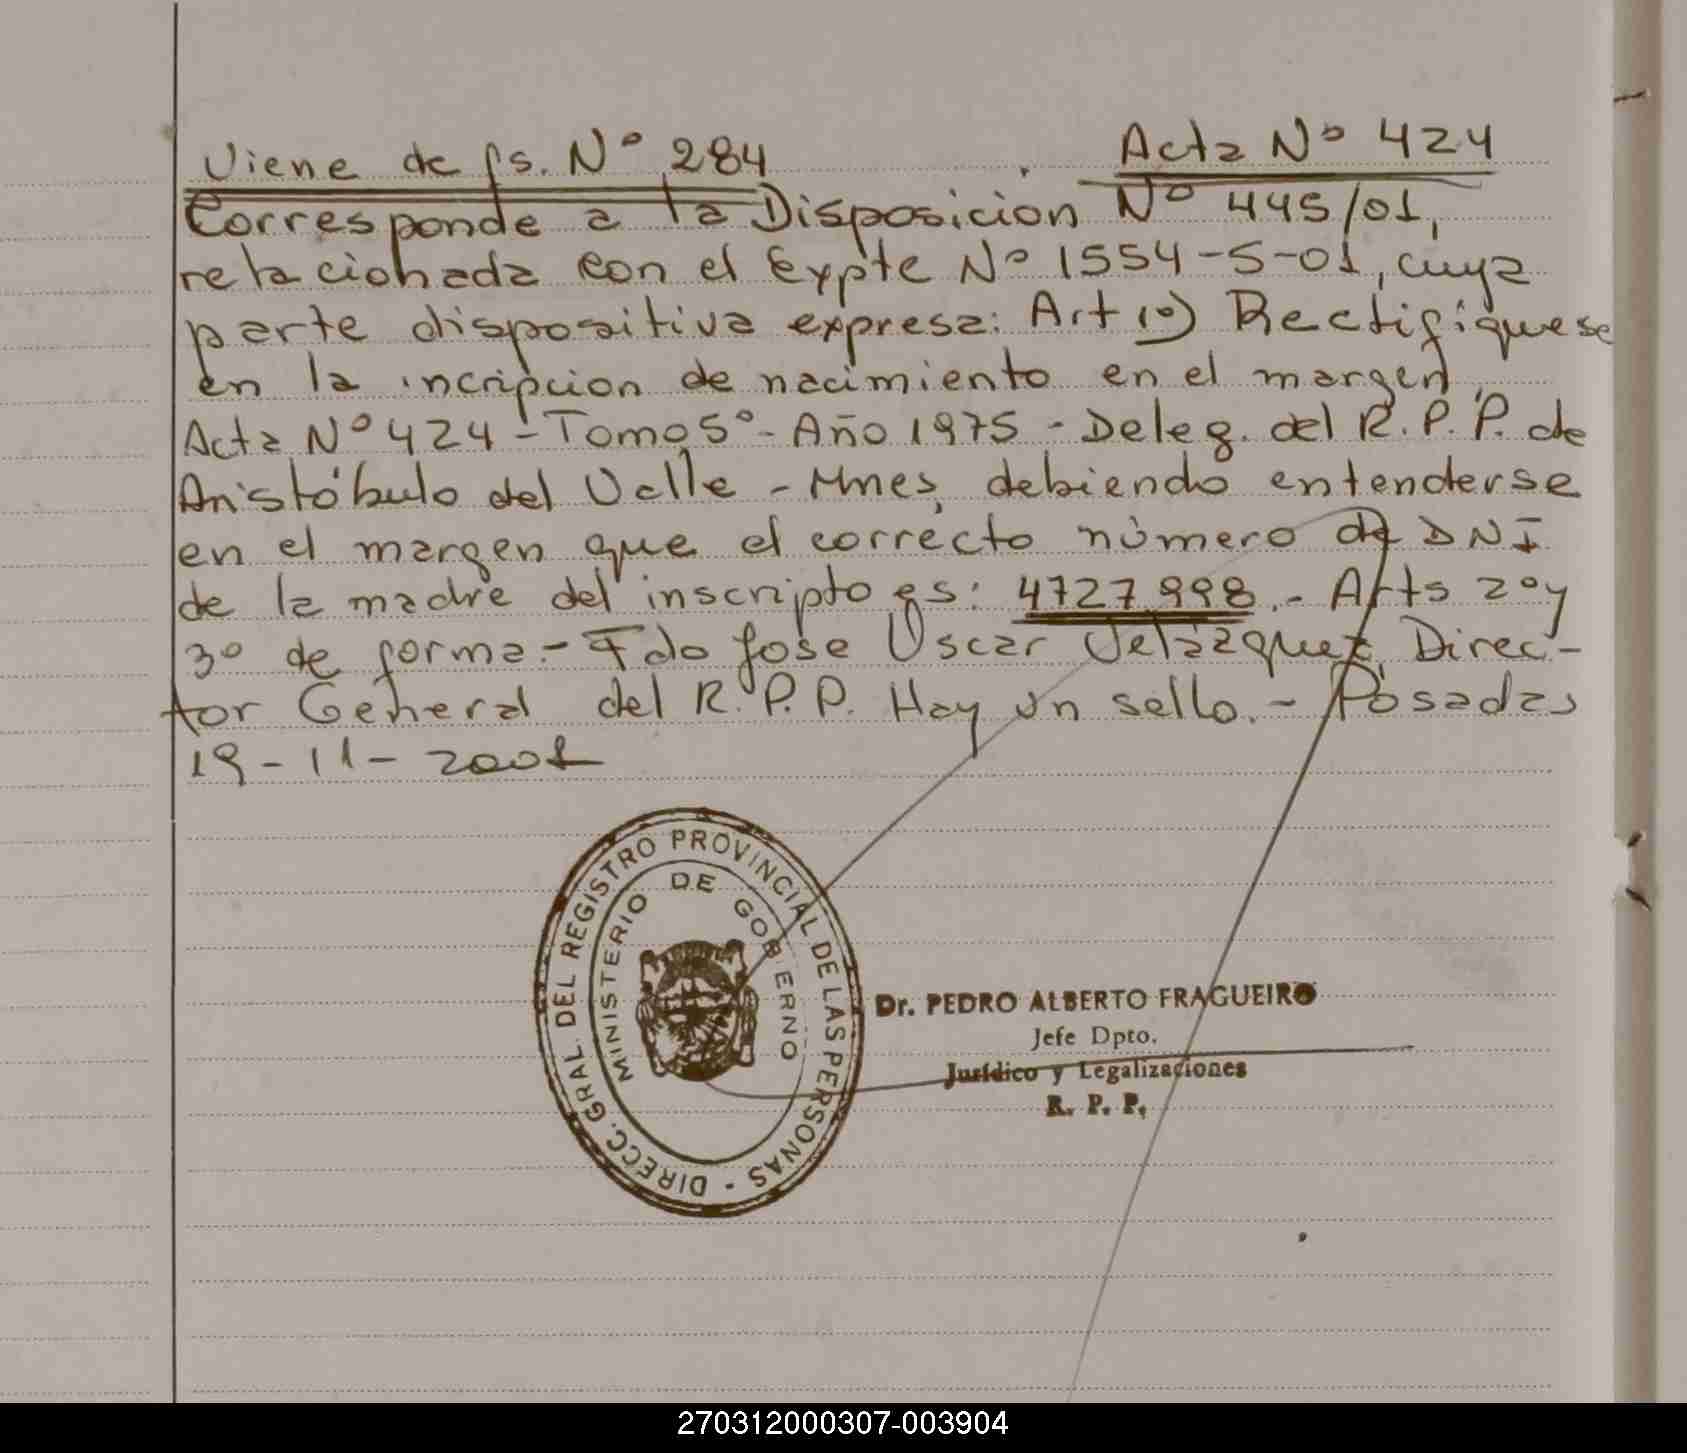 Viene de fs. Nº 284
Acta Nº 424
Corresponde a la Disposición Nº 445/01,
relacionada con el Expte Nº 1554-S-01, cuya
parte dispositiva expresa: Art 1º) Rectifiquese
en la incripcion de nacimiento en el margen,
Acta Nº 424 - Tomo 5º - Año 1975 - Deleg. del R.P.P. de
Aristóbulo del Valle - Mnes, debiendo entenderse
en el margen que el correcto número de DNI
de la madre del inscripto es: 4727998.- Arts 2º y
3º de forma.- Fdo Jose Oscar Velazquez, Direc-
tor General del R.P.P. Hay un sello.- Posadas
19-11-2001
DIRECC. GRAL. DEL REGISTRO PROVINCIAL DE LAS PERSONAS -
MINISTERIO DE GOBIERNO
Dr. PEDRO ALBERTO FRAGUEIRO
Jefe Dpto.
Jurídico y Legalizaciones
R. P. P.
270312000307-003904